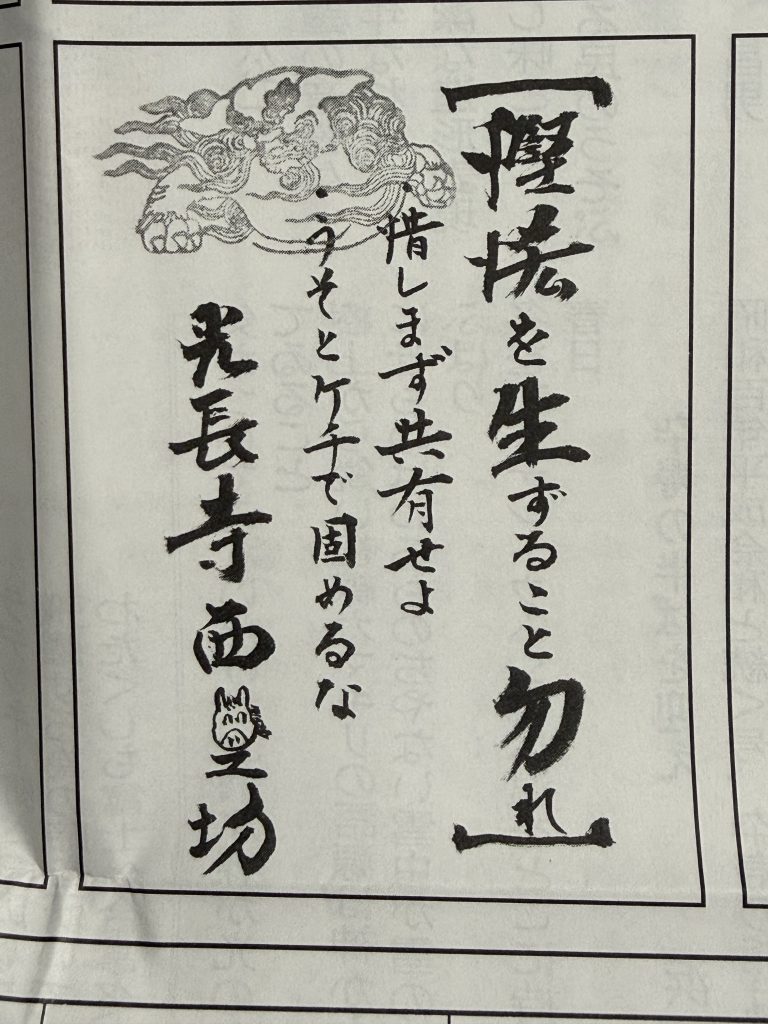 [慳悋を生ずること勿れ]
・惜しまず共有せよ
・うそとケチで固めるな
光長寺 西之坊